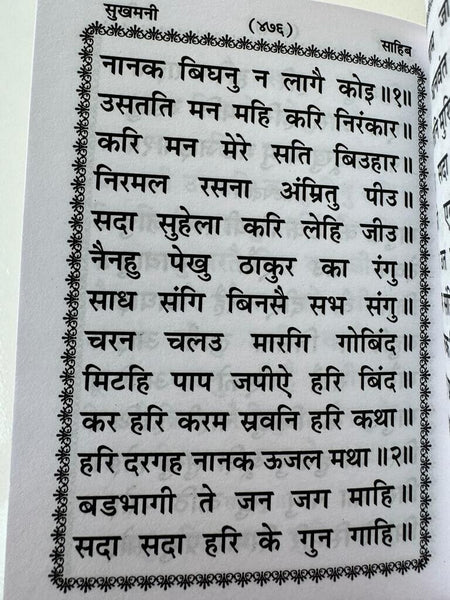 सुखमनी (४७६) साहिब
नानक बिघनु न लागै कोइ॥१॥
उसतति मन महि करि निरंकार॥
करि मन मेरे सति बिउहार॥
निरमल रसना अंम्रितु पीउ॥
सदा सुहेला करि लेहि जीउ॥
नैनहु पेखु ठाकुर का रंगु॥
साध संगि बिनसै सभ संगु॥
चरन चलउ मारगि गोबिंद॥
मिटहि पाप जपीऐ हरि बिंद॥
कर हरि करम स्रवनि हरि कथा॥
हरि दरगह नानक ऊजल मथा॥२॥
बडभागी ते जन जग माहि॥
सदा सदा हरि के गुन गाहि॥